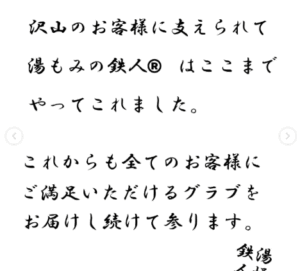 沢山のお客様に支えられて
湯もみの鉄人® はここまで
やってこれました。
これからも全てのお客様に
ご満足いただけるグラブを
お届けし続けて参ります。
湯
鉄